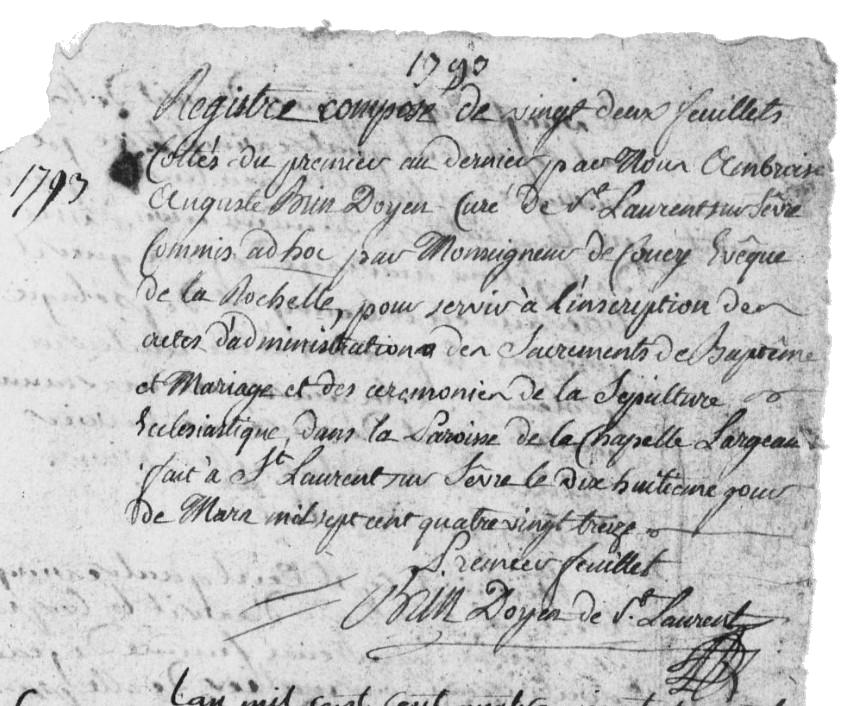 1793
Registre composé de vingt deux feuillets
Cottés du premier au dernier par Nous Ambroise
1793
Auguste Brin Doyen Curé de St. Laurent sur Sêvre
Commis ad hoc par Monseigneur de Coucy Evêque
de la Rochelle, pour servir à l'inscription des
actes d'administration des Sacrements de Baptême
et Mariage et des ceremonies de la Sépulture
Ecclesiastique, dans la Paroisse de la Chapelle Largeau
fait à St Laurent sur Sêvre le dix huitieme jour
de Mars mil sept cent quatre vingt treize
Premier feuillet
Brin Doyen de St. Laurent
L'an mil sept cent quatre